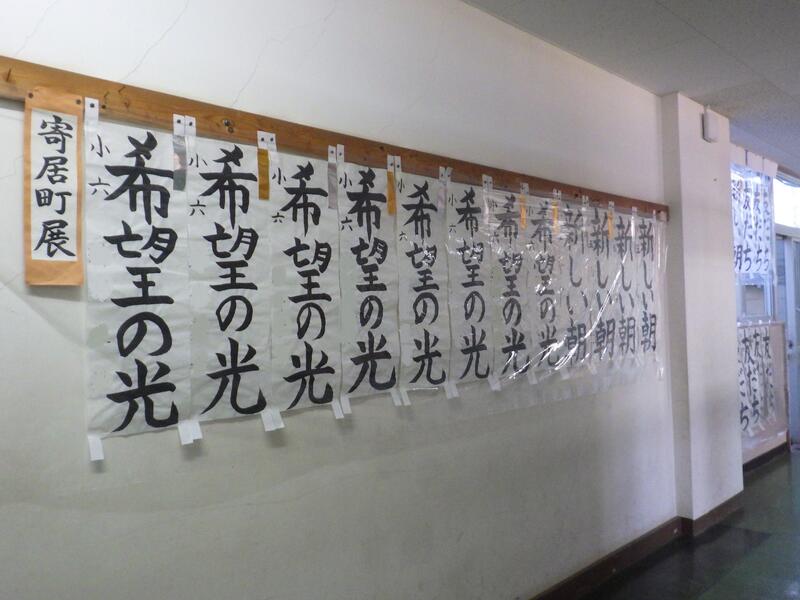 寄居町展
小六
希望の光
小六
希望の光
小六
希望の光
小六
希望の光
小六
希望の光
小六
希望の光
希望の光
希望の光
新しい朝
新しい朝
新しい朝
新しい朝
友だち
友だち
友だち
友だち